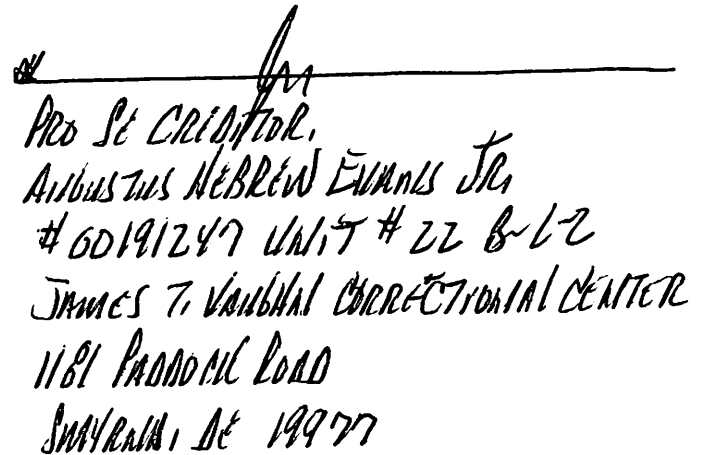 PRO SE CREDITOR.
AUGUSTUS HEBREW EVANS JR.
# 00191247 UNIT # 22 B-L-2
JAMES T. VAUGHN CORRECTIONAL CENTER
1181 PADDOCK ROAD
SMYRNA, DE 19977